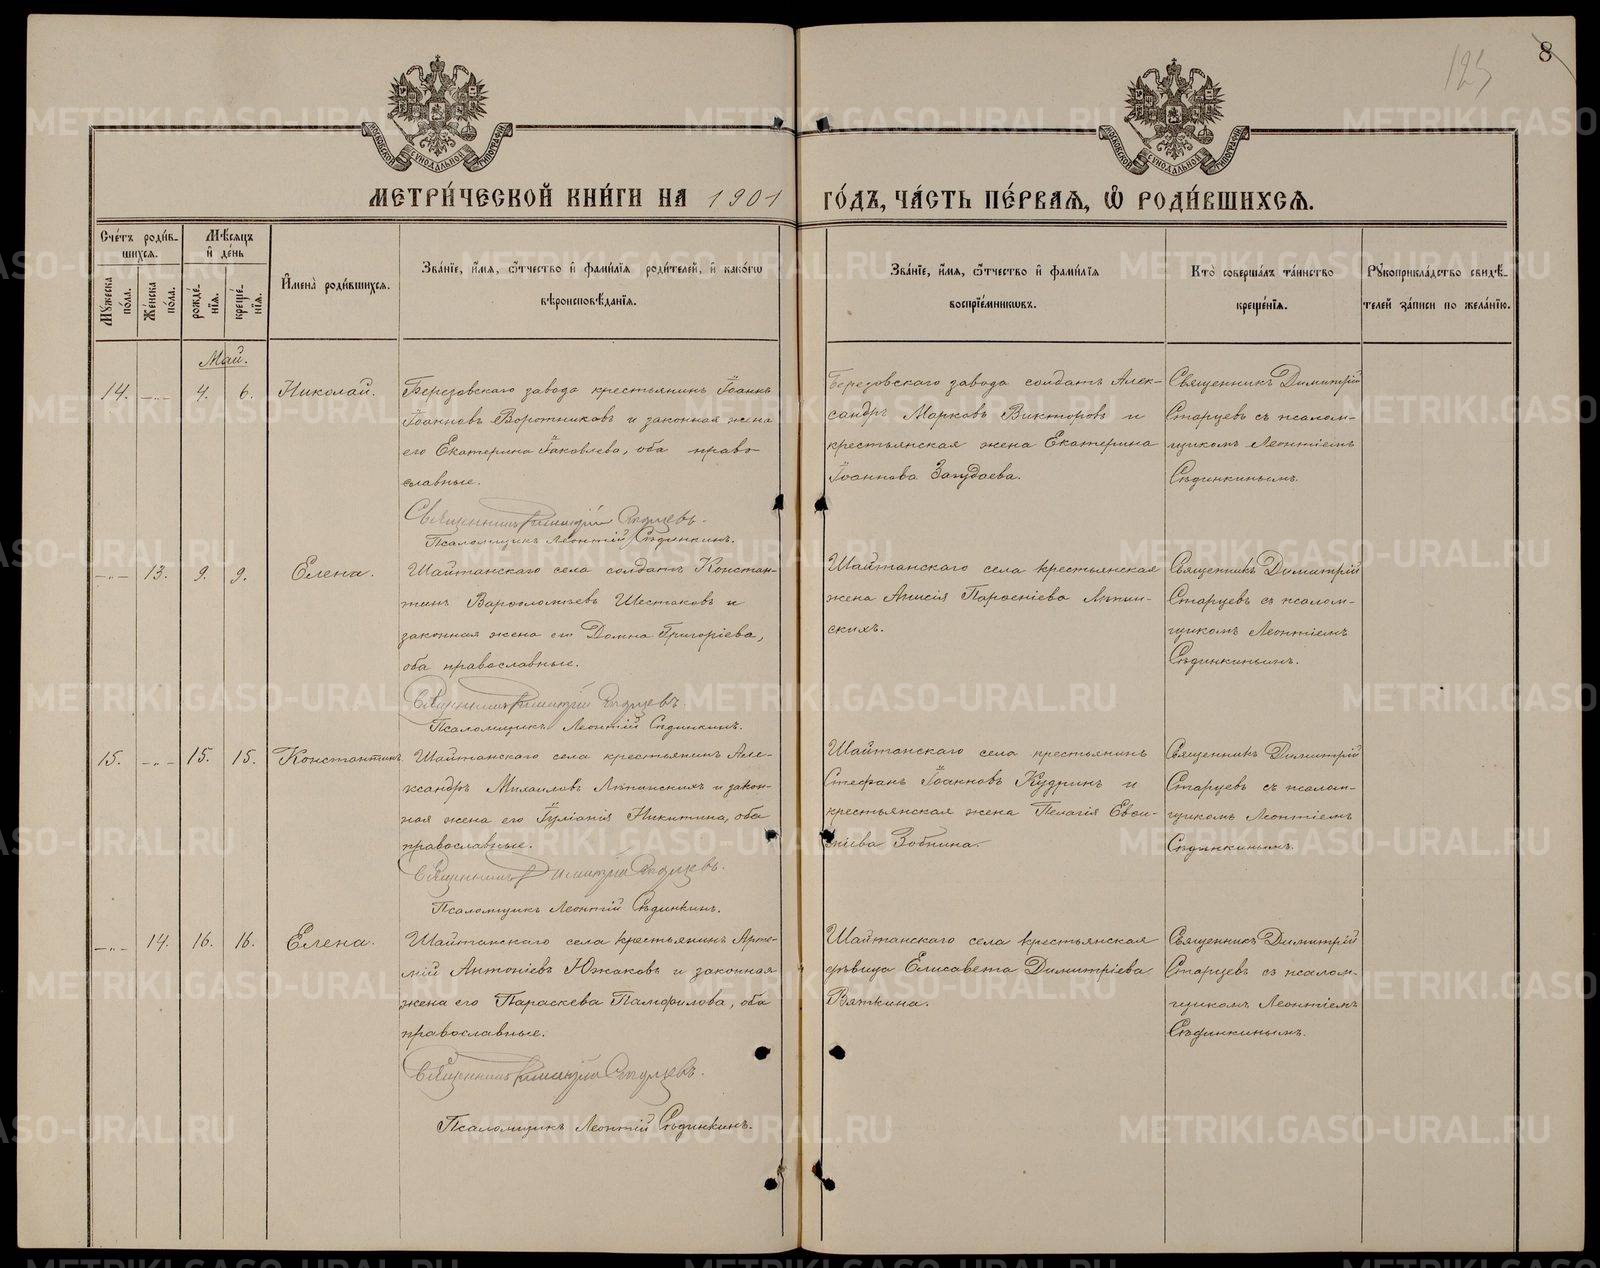 125
8
МОСКОВСКОЙ СУНОДАЛЬНОЙ ТИПОГРАФІИ
МОСКОВСКОЙ СУНОДАЛЬНОЙ ТИПОГРАФІИ
МЕТРИ́ЧЕСКОЙ КНИ́ГИ НА 1901
ГО́ДЪ, ЧА́СТЬ ПЕ́РВАѦ, Ѡ҆ РОДИ́ВШИХСѦ.
Сче́тъ роди́в-
шихсѧ.
Мꙋ́жеска по́ла.
Же́нска по́ла.
Мѣ́сѧцъ
и҆ де́нь
рожде́-
нїѧ.
креще́-
нїѧ.
И҆мена̀ роди́вшихсѧ.
Зва́нїе, и҆́мѧ, ѻ҆́тчество и҆ фами́лїѧ роди́телей, и҆ како́гѡ
вѣроисповѣ́данїѧ.
Зва́нїе, и҆́мѧ, ѻ҆́тчество и҆ фами́лїѧ
воспрїе́мникѡвъ.
Кто̀ соверша́лъ та́инство
креще́нїѧ.
Рꙋкоприкла́дство свидѣ́-
телей за́писи по жела́нїю.
Май.
14. —„— 4. 6. Николай.
Березовскаго завода крестьянинъ Іоаннъ
Іоанновъ Воротниковъ и законная жена
его Екатерина Іаковлева, оба право-
славные.
Священникъ Димитрій Старцевъ.
Псаломщикъ Леонтій Сѣдинкинъ.
Березовскаго завода солдатъ Алек-
сандръ Марковъ Викторовъ и
крестьянская жена Екатерина
Іоаннова Загудаева.
Священникъ Димитрій
Старцевъ съ псалом-
щикомъ Леонтіемъ
Сѣдинкинымъ.
—„— 13. 9. 9. Елена.
Шайтанскаго села солдатъ Констан-
тинъ Варѳоломѣевъ Шестаковъ и
законная жена его Домна Григоріева,
оба православные.
Священникъ Димитрій Старцевъ.
Псаломщикъ Леонтій Сѣдинкинъ.
Шайтанскаго села крестьянская
жена Анисія Парѳеніева Ляпин-
скихъ.
Священникъ Димитрій
Старцевъ съ псалом-
щикомъ Леонтіемъ
Сѣдинкинымъ.
15. —„— 15. 15. Константинъ
Шайтанскаго села крестьянинъ Але-
ксандръ Михаиловъ Ляпинскихъ и закон-
ная жена его Іуліанія Никитина, оба
православные.
Священникъ Димитрій Старцевъ.
Псаломщикъ Леонтій Сѣдинкинъ.
Шайтанскаго села крестьянинъ
Стефанъ Іоанновъ Кудринъ и
крестьянская жена Пелагія Евои-
міева Зобнина.
Священникъ Димитрій
Старцевъ съ псалом-
щикомъ Леонтіемъ
Сѣдинкинымъ.
—„— 14. 16. 16. Елена.
Шайтанскаго села крестьянинъ Арте-
мій Антоніевъ Южаковъ и законная
жена его Параскева Памфилова, оба
православные.
Священникъ Димитрій Старцевъ.
Псаломщикъ Леонтій Сѣдинкинъ.
Шайтанскаго села крестьянская
дѣвица Елисавета Димитріева
Вяткина.
Священникъ Димитрій
Старцевъ съ псалом-
щикомъ Леонтіемъ
Сѣдинкинымъ.
METRIKI.GASO-URAL.RU